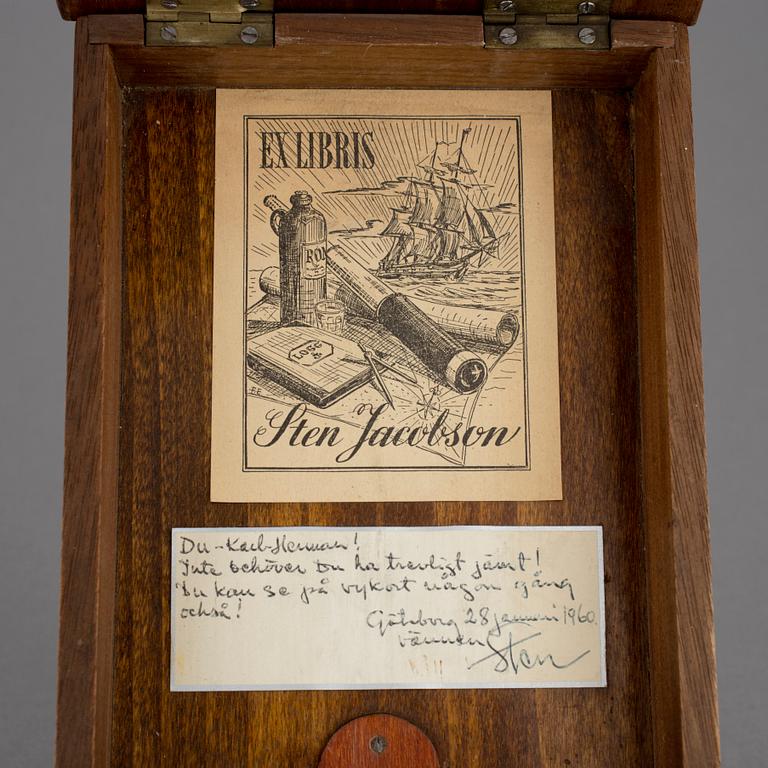 EX LIBRIS
ROM
LOGG
BE
Sten Jacobson
Du - Karl-Herman!
Inte behöver Du ha trevligt jämt!
Du kan se på vykort någon gång
också!
Göteborg 28 januari 1960.
vännen
Sten